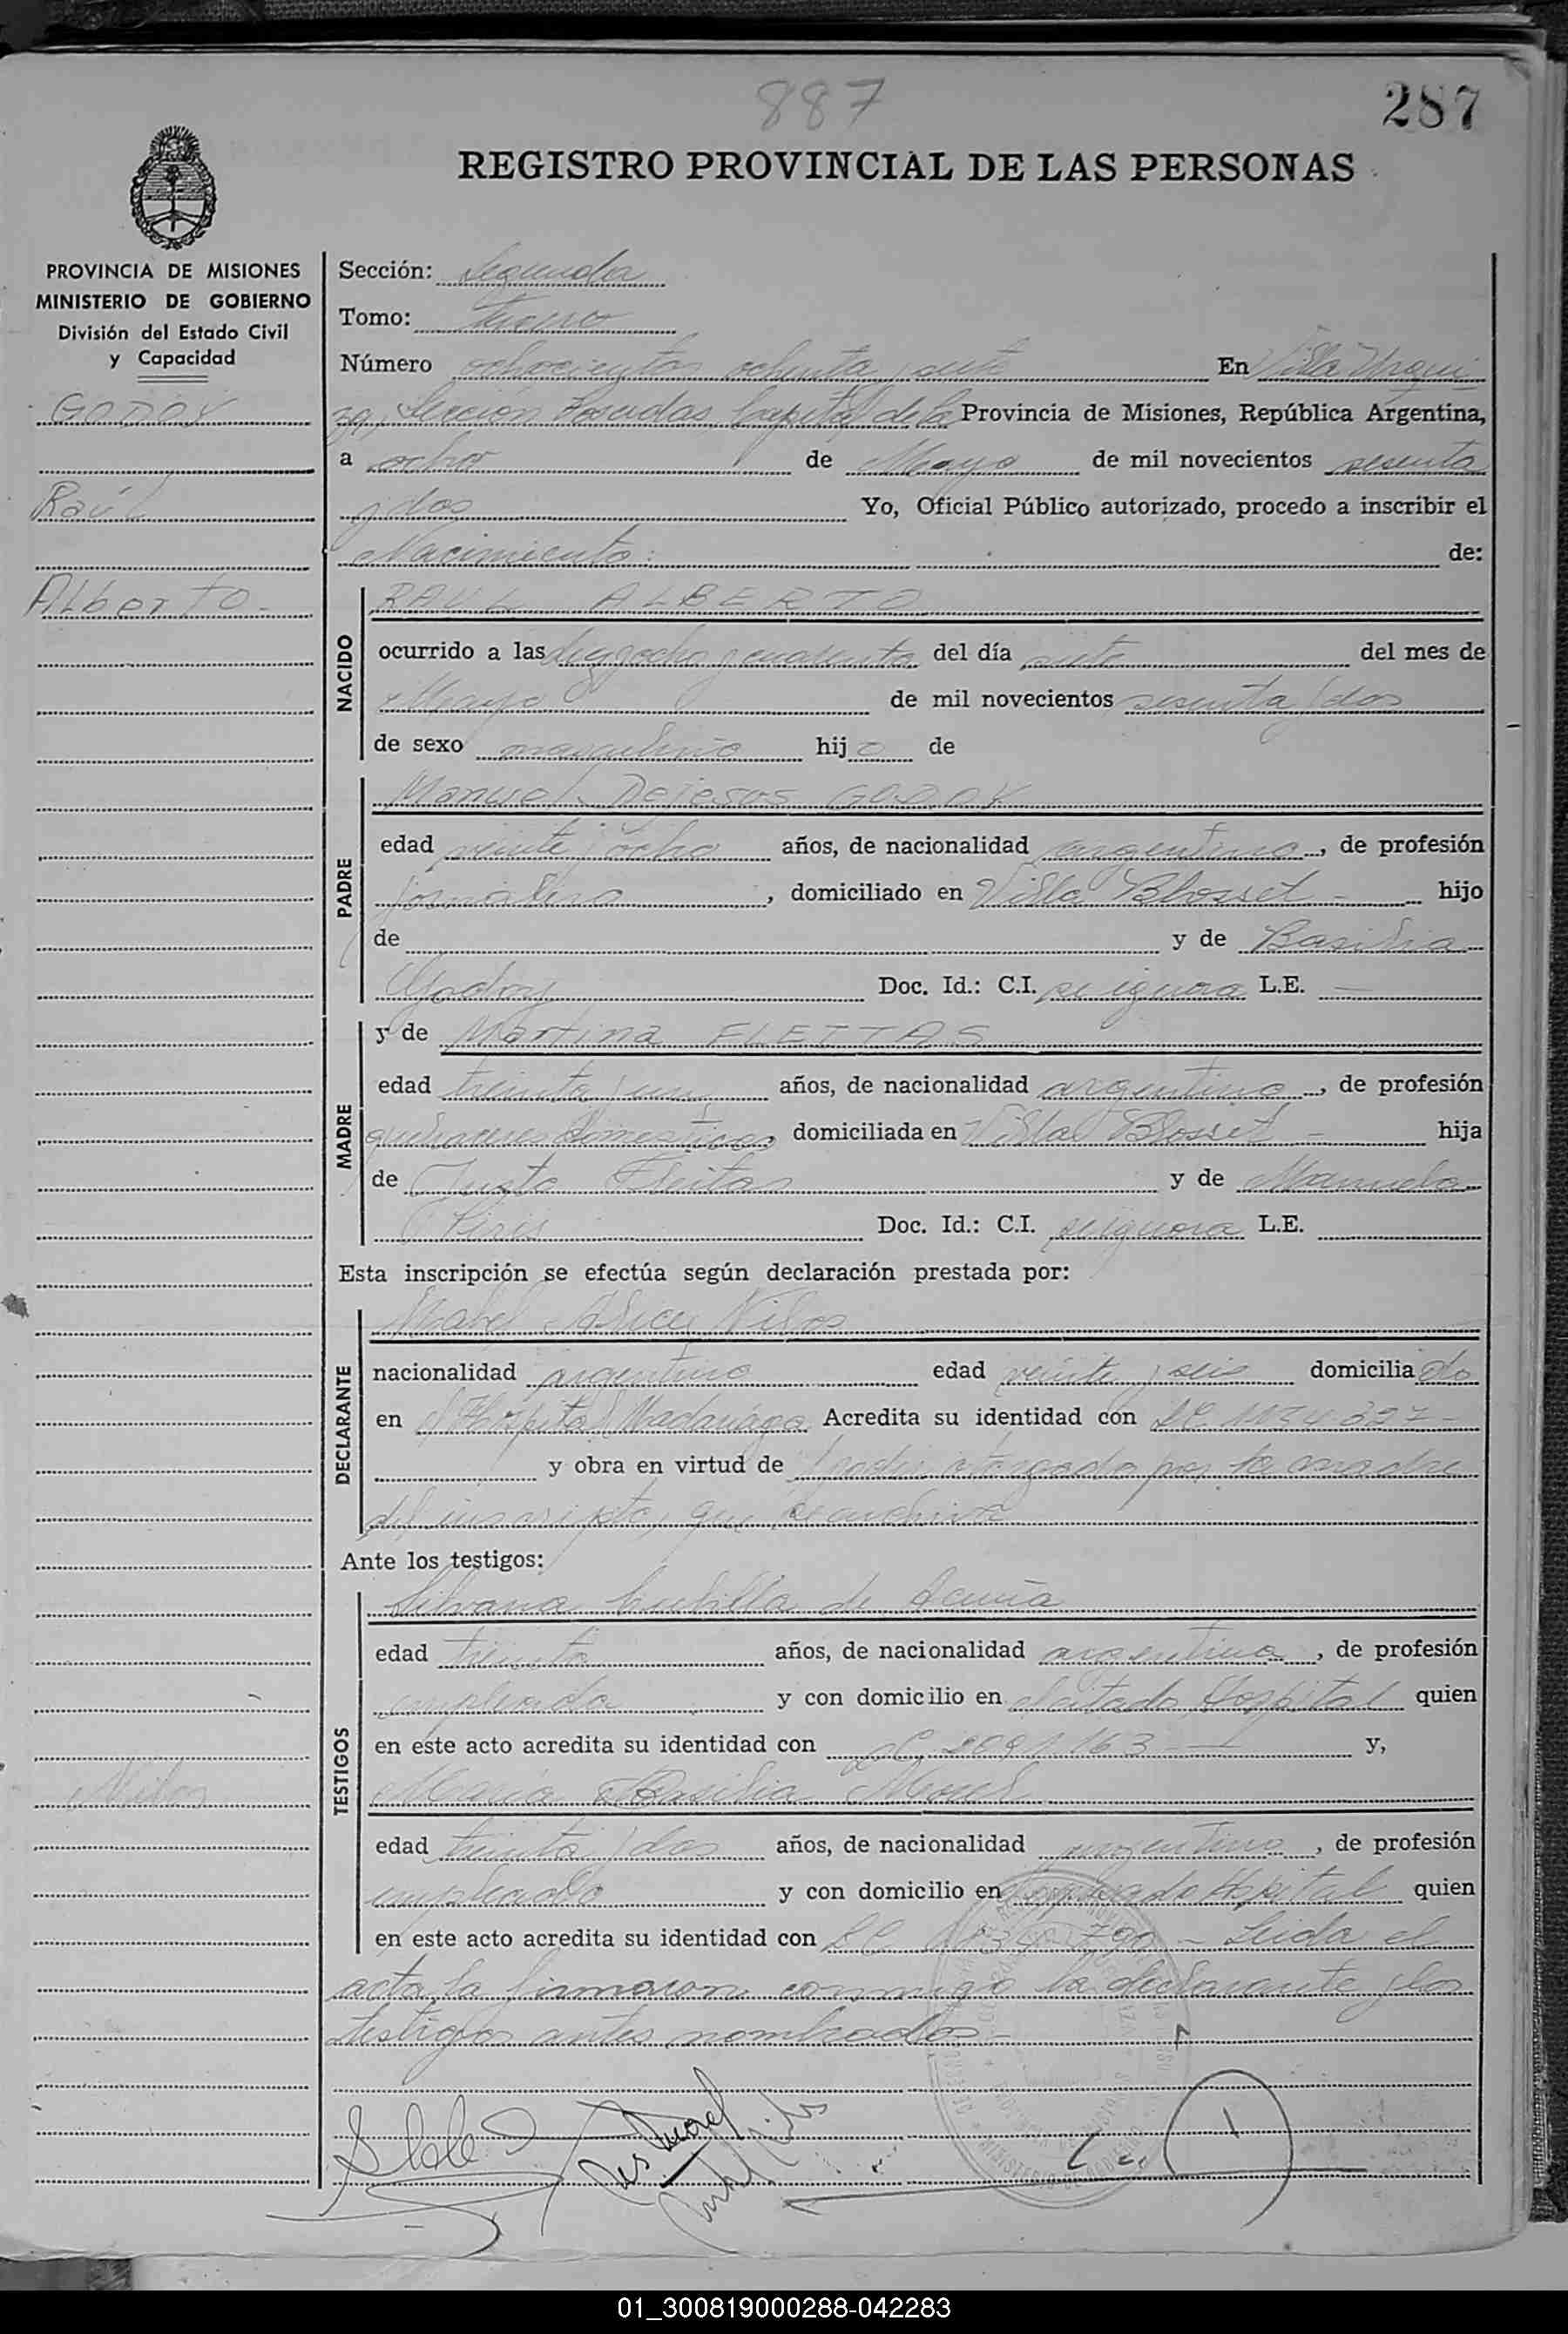 887
287
REGISTRO PROVINCIAL DE LAS PERSONAS
PROVINCIA DE MISIONES
MINISTERIO DE GOBIERNO
División del Estado Civil
y Capacidad
GODOY
Raúl
Alberto -
Nilos
Sección: Segunda
Tomo:
Número ochocientos ochenta y siete En Villa Urqui
za, Sección Posadas, Capital de la Provincia de Misiones, República Argentina,
a ocho de Mayo de mil novecientos sesenta
y dos Yo, Oficial Público autorizado, procedo a inscribir el
Nacimiento: de:
NACIDO
RAUL ALBERTO
ocurrido a las diez y ocho y cuarenta del día siete del mes de
Mayo de mil novecientos sesenta y dos
de sexo masculino hijo de
PADRE
Manuel Dejesus GODOY
edad veinte y ocho años, de nacionalidad argentino, de profesión
jornalero, domiciliado en Villa Blosset - hijo
de y de Basilia
Godoy Doc. Id.: C.I. se ignora L.E. —
MADRE
y de Martina FLEITAS
edad treinta y un años, de nacionalidad argentina, de profesión
quehaceres domesticos domiciliada en Villa Blosset - hija
de Justo Fleitas y de Manuela
Piris Doc. Id.: C.I. se ignora L.E.
Esta inscripción se efectúa según declaración prestada por:
DECLARANTE
Mabel Nilos
nacionalidad argentina edad veinte y seis domiciliado
en Hospital Madariaga Acredita su identidad con LC.
y obra en virtud de poder otorgado por la madre
del inscripto, que se archiva
Ante los testigos:
TESTIGOS
Silvana Cubilla de Acuña
edad treinta años, de nacionalidad argentina, de profesión
empleada y con domicilio en el citado Hospital quien
en este acto acredita su identidad con LC. 2091163 — y,
María Basilia Morel
edad treinta y dos años, de nacionalidad argentina, de profesión
empleada y con domicilio en Hospital quien
en este acto acredita su identidad con LC - Leida el
acta la firmaron conmigo la declarante y los
testigos antes nombrados -
01_300819000288-042283